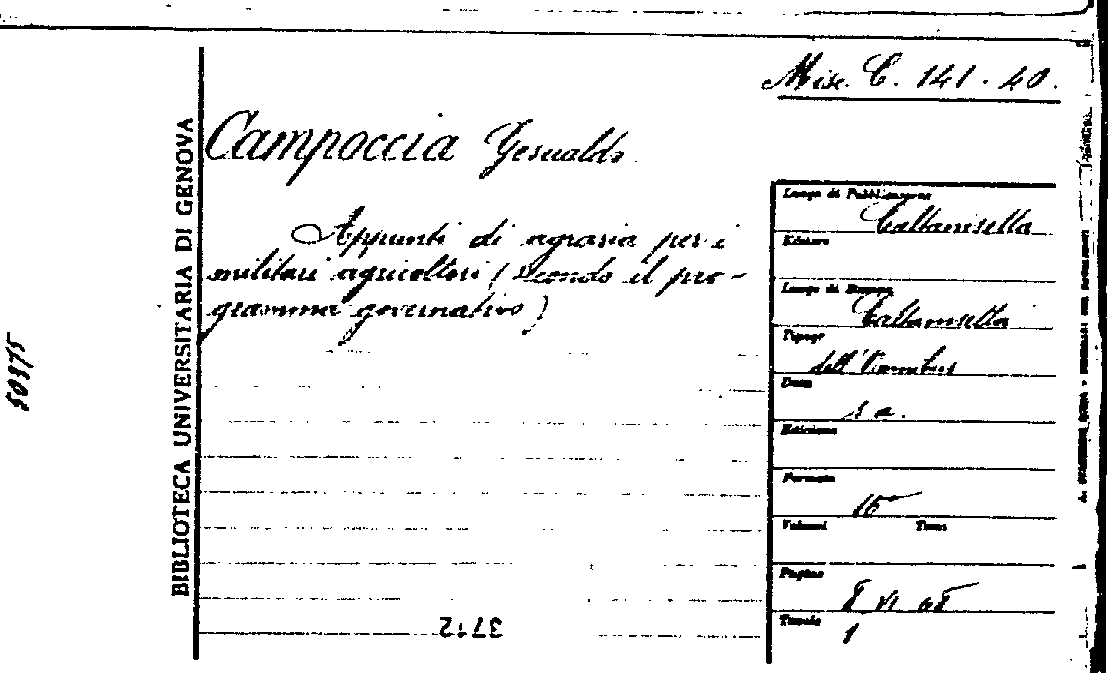 Misc. C. 141. 40.
Campoccia Gesualdo
Appunti di agraria per i
militari agricoltori (secondo il pro-
gramma governativo)
BIBLIOTECA UNIVERSITARIA DI GENOVA
50375
Luogo di Pubblicazione
Caltanisetta
Editore
Luogo di Stampa
Caltanisetta
Tipogr.
dell'Omnibus
Data
s. a.
Edizione
Formato
16°
Volumi Tomi
Pagine
8
Tavole
1
3712